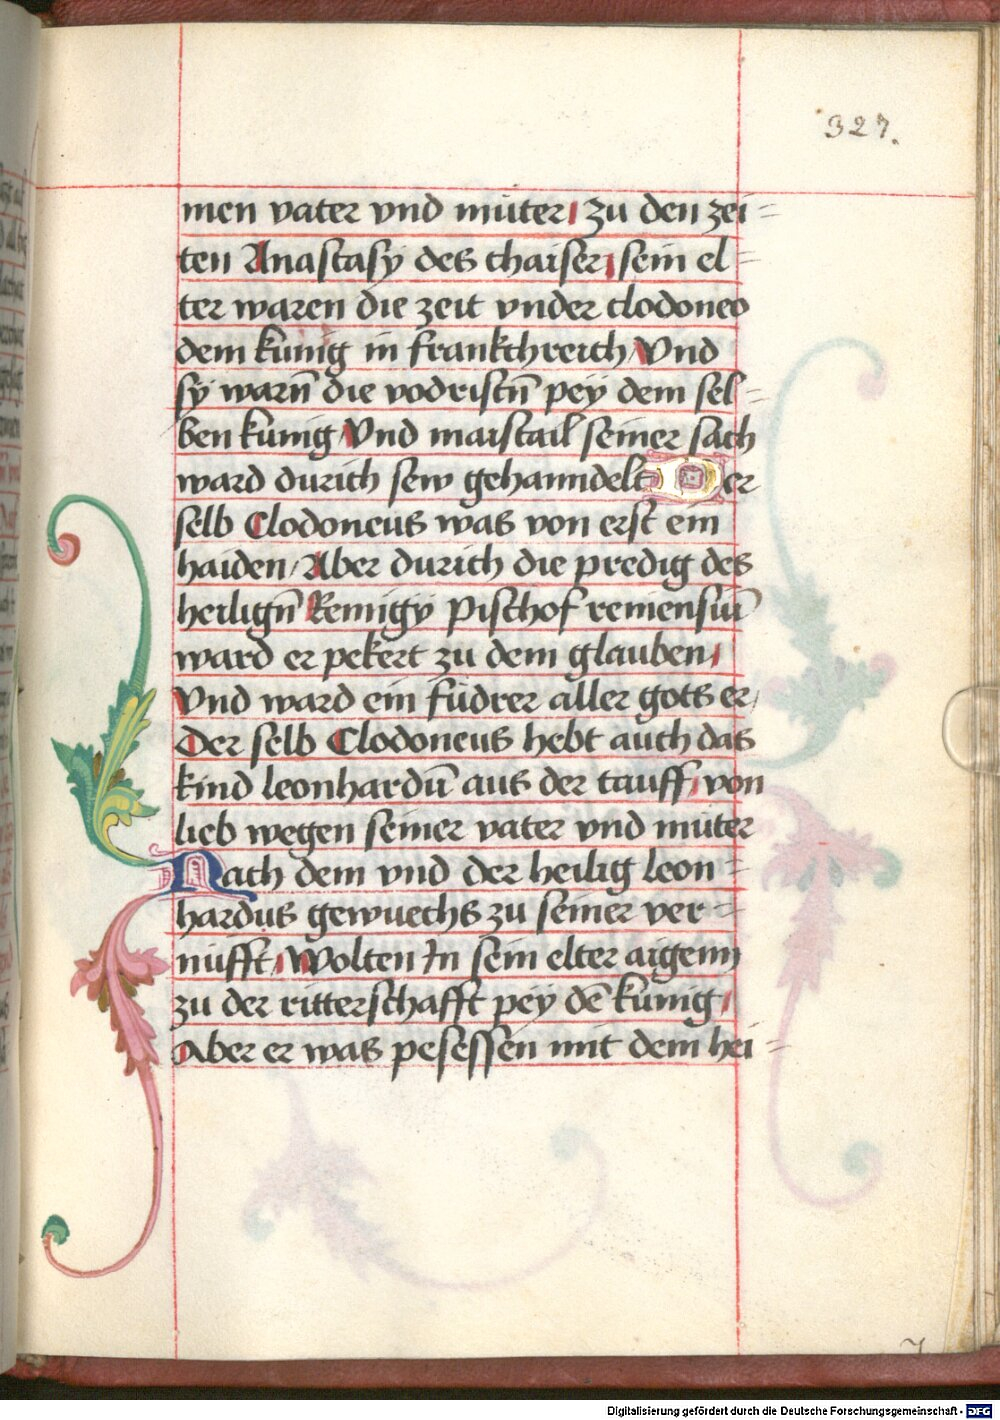 327.
men vater vnd müter, zu den zei=
ten Anastasÿ des chaiser, sein el=
ter waren die zeit vnder clodoneo
dem kunig in frankchreich, Vnd
sÿ warn̄ die vodristn̄ peÿ dem sel=
ben kunig, Vnd maistail seiner sach
ward durich sew gehanndelt Der
selb Clodoneus was von erst ein
haiden, Aber durich die predig des
heilign̄ Remigÿ Pischof remensiū
ward er pekert zu dem glauben,
Vnd ward ein füdrer aller gots er,
Der selb Clodoneus hebt auch das
kind leonhardū aus der tauff, von
lieb wegen seiner vater vnd müter
Nach dem vnd der heilig leon=
hardus gewuechs zu seiner ver=
nüfft, Wolten In sein elter aigenn
zu der ritterschafft peÿ dē kunig,
Aber er was pesessen mit dem hei=
Digitalisierung gefördert durch die Deutsche Forschungsgemeinschaft - DFG